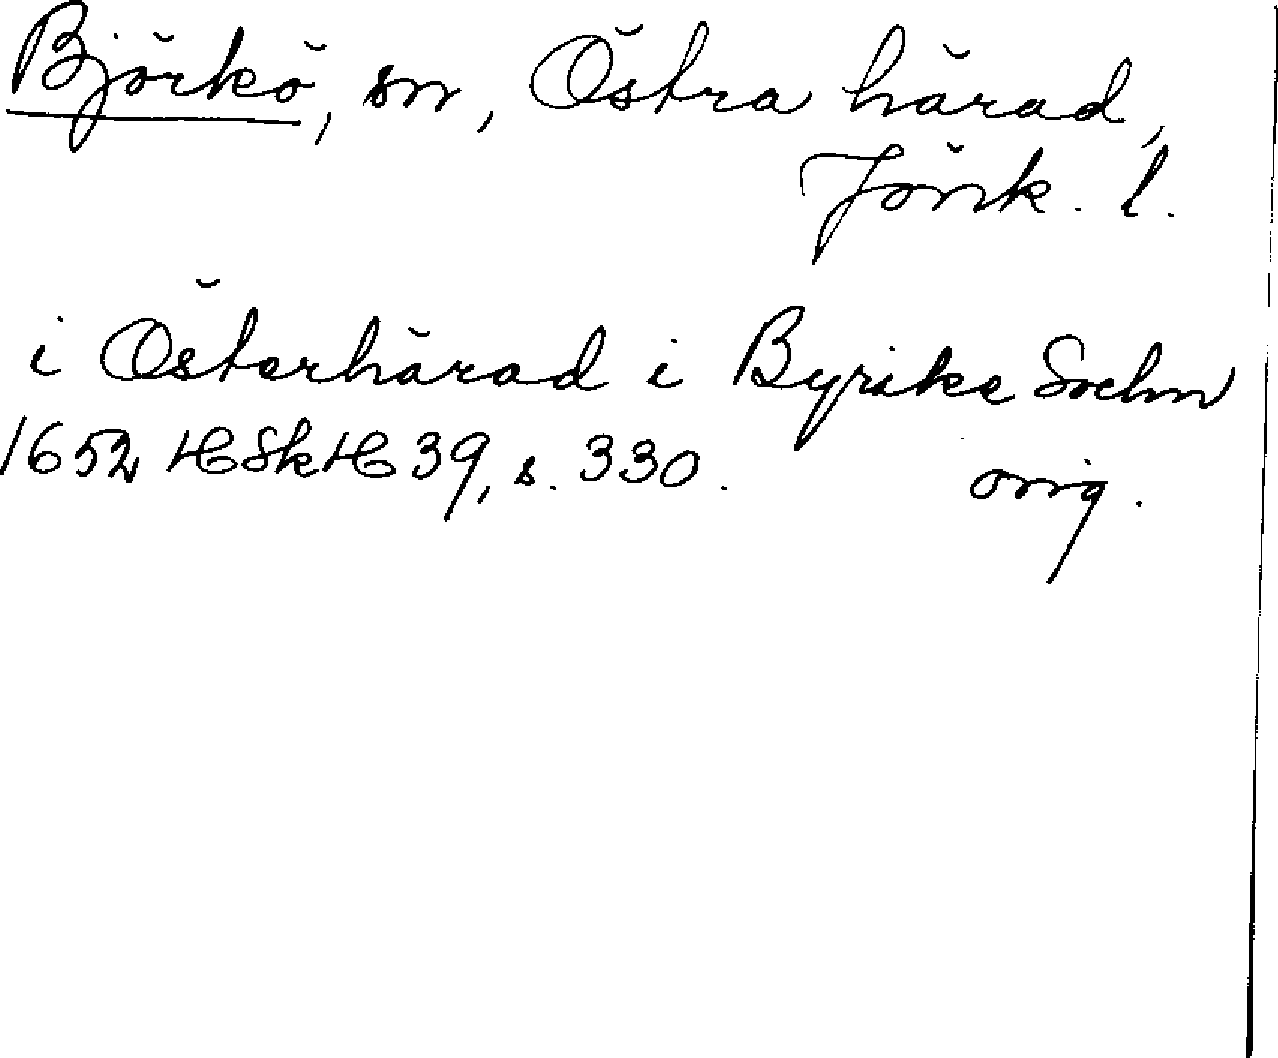 Björkö, sn, Östra härad,
Jönk. l.
i Österhärad i Byrike Sochn
1652 HSkH 39, s. 330. orig.